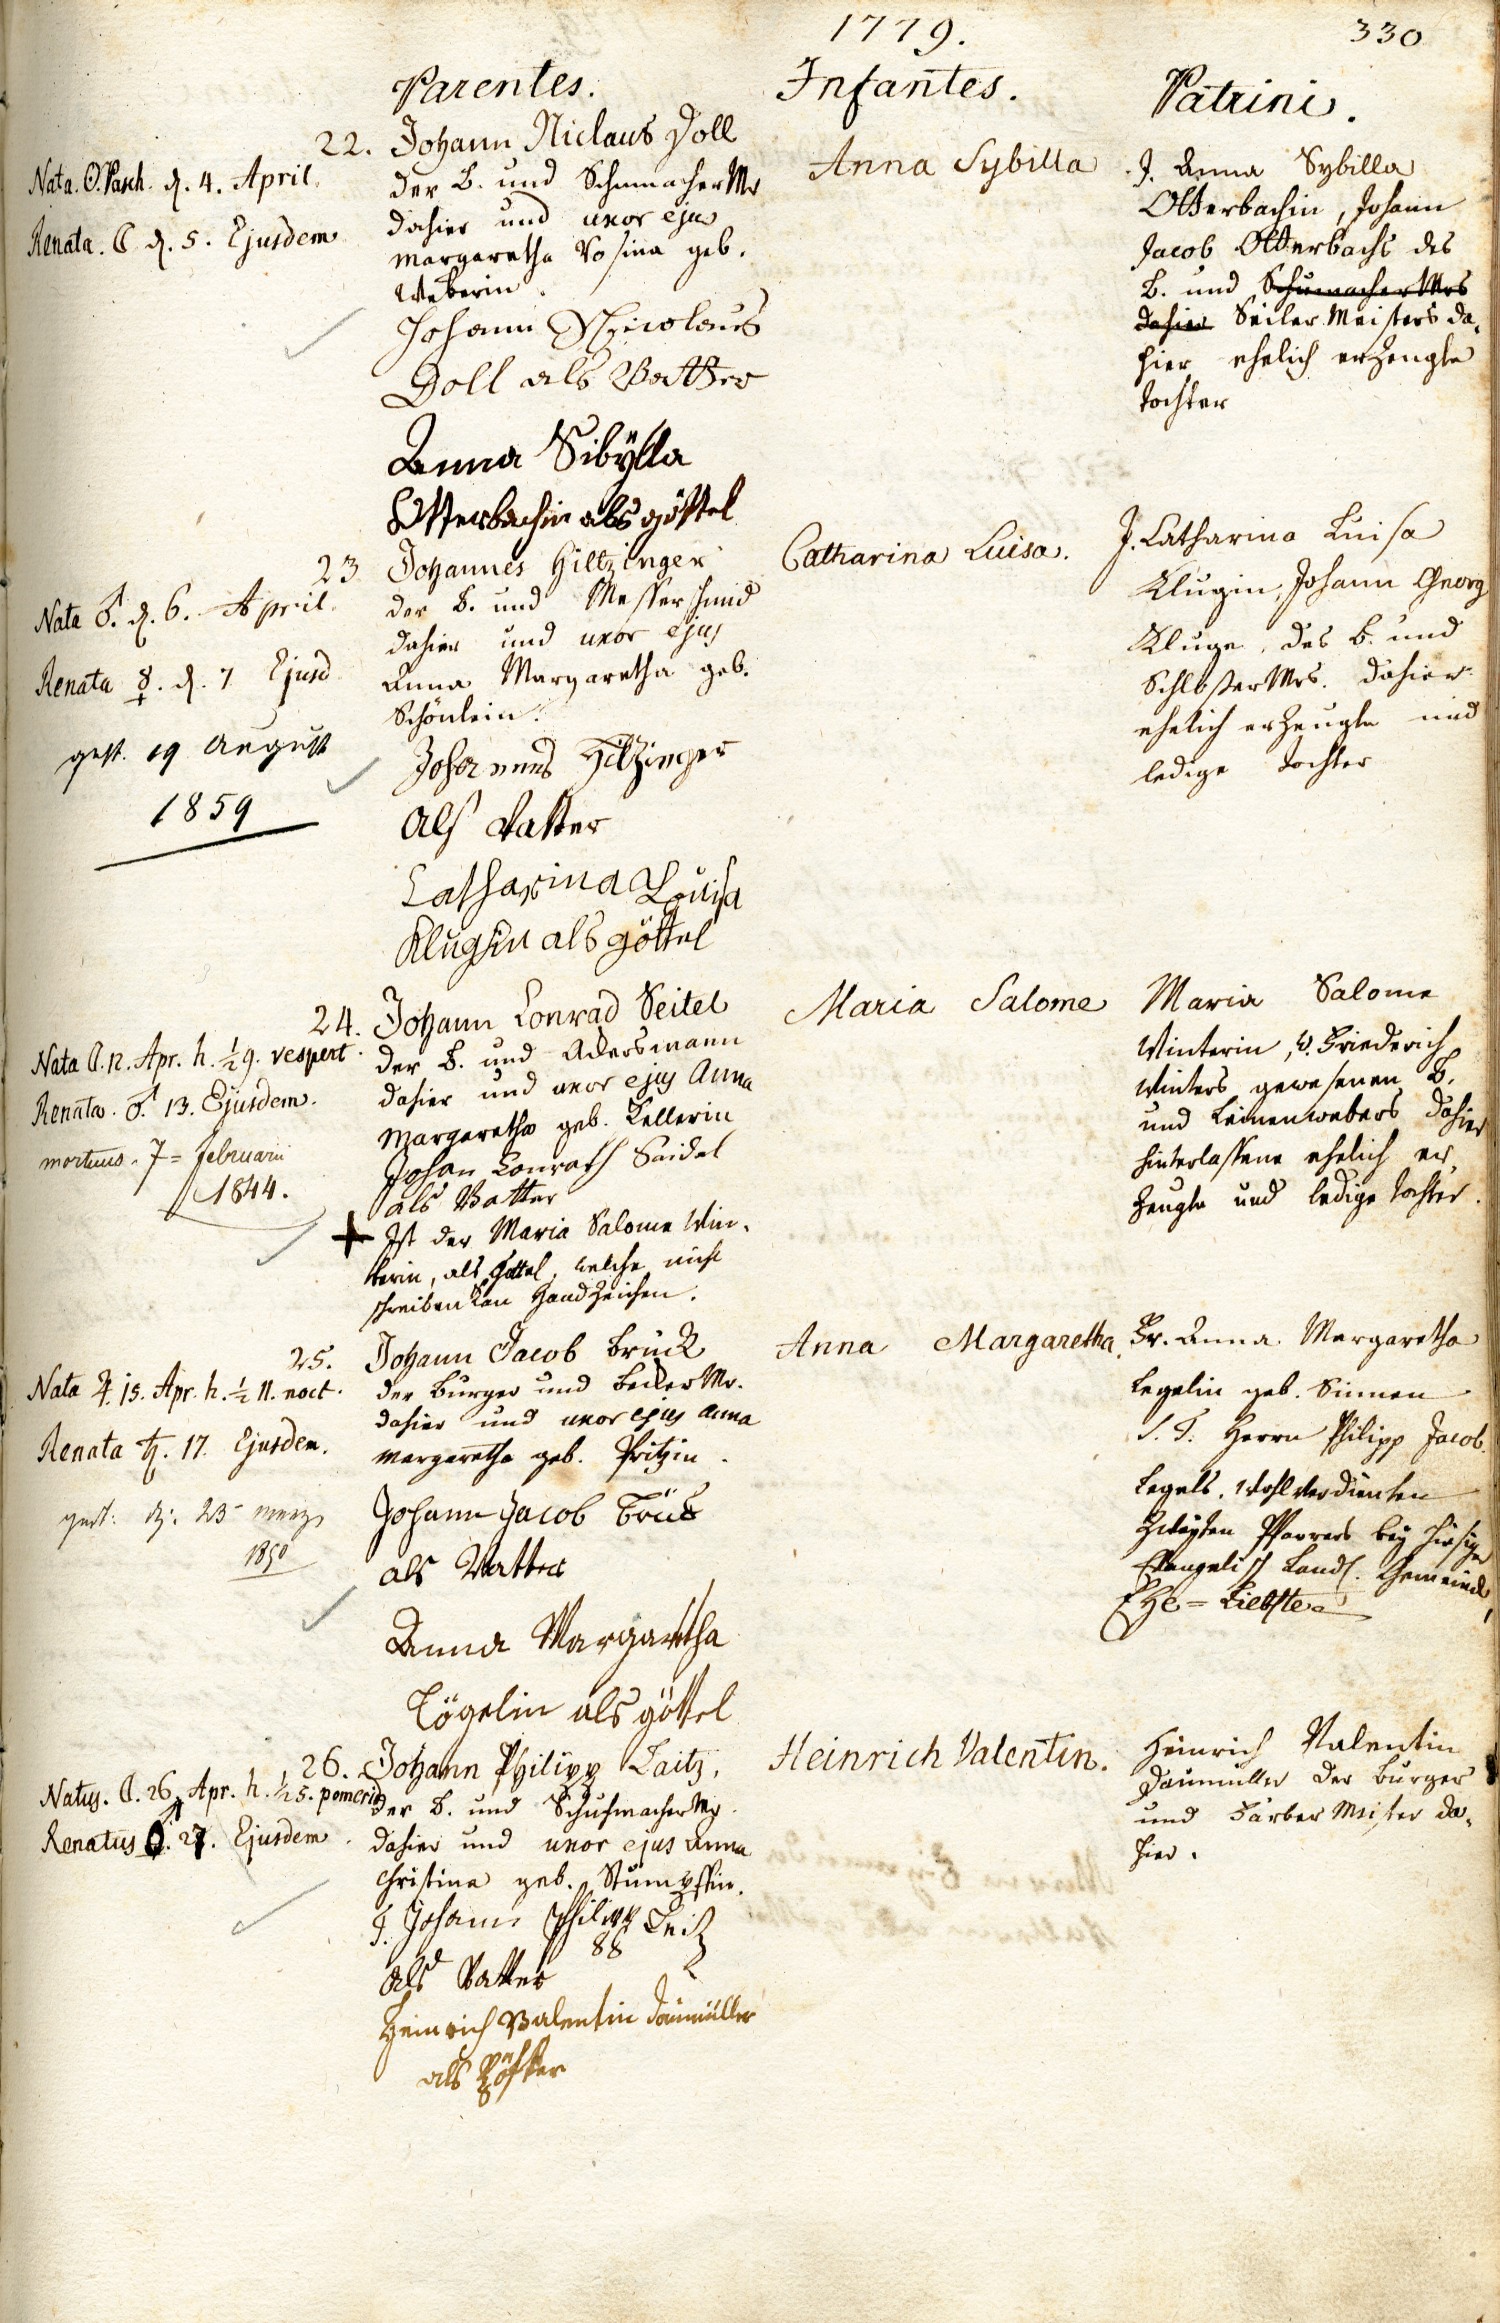 1779.
330
Parentes.
Infantes.
Patrini.
22.
Nata. O. Pasch. d. 4. April.
Renata. d. 5. Ejusdem
Johann Niclaus Doll
der B. und SchumacherMr
dahier und uxor ejus
Margaretha Rosina geb.
Weberin.
Johann Nicolaus
Doll als Vatter
Anna Sibÿlla
Otterbachin als göttel
Anna Sybilla
J. Anna Sybilla
Otterbachin, Johann
Jacob Otterbachs des
B. und SchumacherMrs
dahier Seiler Meisters da-
hier ehelich erzeugte
tochter
23
Nata ♂. d. 6. April.
Renata ☿. d. 7 Ejusd
gest. 19 August
1859
Johannes Hiltzinger
der B. und Messerschmid
dahier und uxor ejus
Anna Margaretha geb.
Schönlein.
Johannes Hiltzinger
als Vatter
Catharina Louisa
Klugin als göttel
Catharina Luisa.
J. Catharina Luisa
Klugin, Johann Georg
Kluge, des B. und
SchloßerMrs. dahier
ehelich erzeugte und
ledige tochter
24.
Nata 12. Apr. h. ½9. vespert.
Renata. ♂. 13. Ejusdem.
mortuus. 7= februarii
1844.
Johann Conrad Seitel
der B. und Ackersmann
dahier und uxor ejus Anna
Margaretha geb. Kellerin
Johan Conrath Seidel
als Vatter
+ Ist der Maria Salome Win-
terin, als Göttel, welche nicht
schreiben kan Handzeichen.
Maria Salome
Maria Salome
Winterin, w. Friederich
Winters gewesenen B.
und Leinenwebers dahier
hinterlassene ehelich er-
zeugte und ledige tochter.
25.
Nata ♃. 15. Apr. h. ½ 11. noct.
Renata ♄. 17. Ejusdem.
gest: d. 23 merz
1850
Johann Jacob Brück
der Burger und BeckerMr.
dahier und uxor ejus Anna
Margaretha geb. Fritzin.
Johann Jacob Brück
als Vatter
Anna Margaretha
Lögelin als göttel
Anna Margaretha.
Fr. Anna Margaretha
Legelin geb. Sinnen
S. T. Herrn Philipp Jacob
Legels, wohlverdienten
zweyten Pfarrers bey hiesiger
Evangelisch Gemeinde,
Ehe=Liebste
26.
Natus. 26 Apr. h. ½5. pomerid
Renatus 27. Ejusdem.
Johann Philipp Laitz,
der B. und SchuhmacherMr.
dahier und uxor ejus Anna
Christina geb. Stumpffin.
J. Johann Philipp Leitz
als Vatter
Heinrich Valentin Daumüller
als
Heinrich Valentin.
Heinrich Valentin
Daumüller der Burger
und Färber Meister da-
hier.